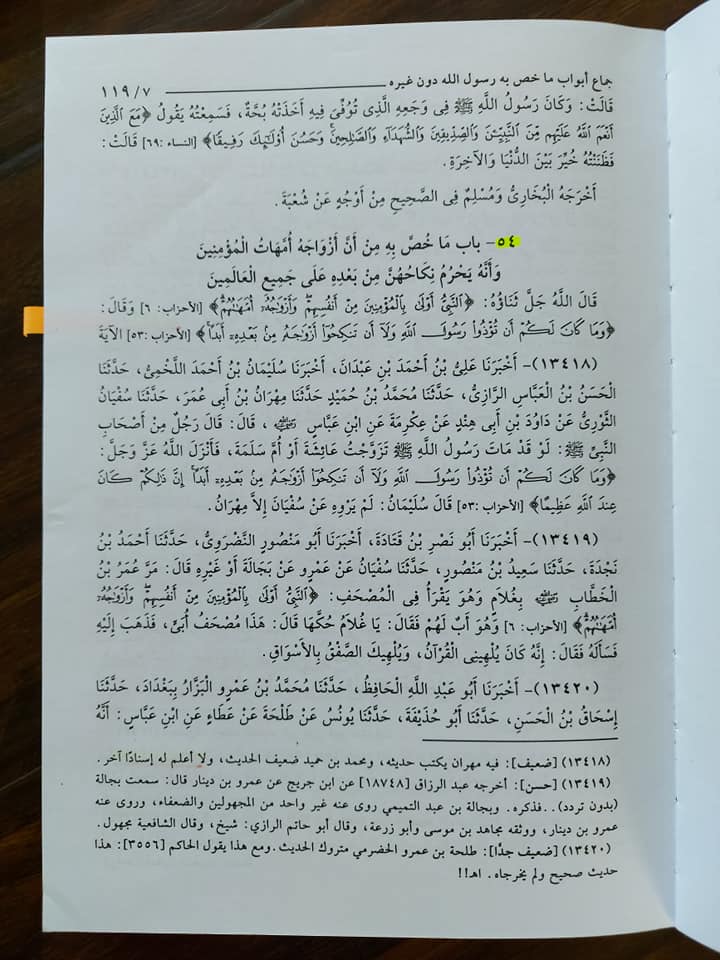 جماع أبواب ما خص به رسول الله دون غيره ١١٩/٧
قَالَتْ: وَكَانَ رَسُولُ اللَّهِ ﷺ فِى وَجَعِهِ الَّذِى تُوُفِّىَ فِيهِ أَخَذَتْهُ بُحَّةٌ، فَسَمِعْتُهُ يَقُولُ ﴿مَعَ الَّذِينَ
أَنْعَمَ اللَّهُ عَلَيْهِم مِّنَ النَّبِيِّـۧنَ وَالصِّدِّيقِينَ وَالشُّهَدَآءِ وَالصَّـٰلِحِينَ ۚ وَحَسُنَ أُو۟لَـٰٓئِكَ رَفِيقًا﴾ [النساء :٦٩] قَالَتْ :
فَظَنَنْتُهُ خُيِّرَ بَيْنَ الدُّنْيَا وَالآخِرَةِ.
أَخْرَجَهُ الْبُخَارِىُّ وَمُسْلِمٌ فِى الصَّحِيحِ مِنْ أَوْجُهٍ عَنْ شُعْبَةَ .
٥٤- باب مَا خُصَّ بِهِ مِنْ أَنَّ أَزْوَاجَهُ أُمَّهَاتُ الْمُؤْمِنِينَ
وَأَنَّهُ يَحْرُمُ نِكَاحُهُنَّ مِنْ بَعْدِهِ عَلَى جَمِيعِ الْعَالَمِينَ
قَالَ اللَّهُ جَلَّ ثَنَاؤُهُ: ﴿النَّبِىُّ أَوْلَىٰ بِالْمُؤْمِنِينَ مِنْ أَنفُسِهِمْ ۖ وَأَزْوَٰجُهُۥٓ أُمَّهَـٰتُهُمْ﴾ [الأحزاب: ٦] وَقَالَ:
﴿وَمَا كَانَ لَكُمْ أَن تُؤْذُوا۟ رَسُولَ اللَّهِ وَلَآ أَن تَنكِحُوٓا۟ أَزْوَٰجَهُۥ مِنۢ بَعْدِهِۦٓ أَبَدًا ۚ﴾ [الأحزاب :٥٣] الآيَةَ
(١٣٤١٨)- أَخْبَرَنَا عَلِىُّ بْنُ أَحْمَدَ بْنِ عَبْدَانَ، أَخْبَرَنَا سُلَيْمَانُ بْنُ أَحْمَدَ اللَّخْمِىُّ، حَدَّثَنَا
الْحَسَنُ بْنُ الْعَبَّاسِ الرَّازِىُّ، حَدَّثَنَا مُحَمَّدُ بْنُ حُمَيْدٍ حَدَّثَنَا مِهْرَانُ بْنُ أَبِى عُمَرَ، حَدَّثَنَا سُفْيَانُ
الثَّوْرِىُّ عَنْ دَاوُدَ بْنِ أَبِى هِنْدٍ عَنْ عِكْرِمَةَ عَنِ ابْنِ عَبَّاسٍ رضي الله عنه ، قَالَ: قَالَ رَجُلٌ مِنْ أَصْحَابِ
النَّبِىِّ ﷺ: لَوْ قَدْ مَاتَ رَسُولُ اللَّهِ ﷺ تَزَوَّجْتُ عَائِشَةَ أَوْ أُمَّ سَلَمَةَ، فَأَنْزَلَ اللَّهُ عَزَّ وَجَلَّ:
﴿وَمَا كَانَ لَكُمْ أَن تُؤْذُوا۟ رَسُولَ اللَّهِ وَلَآ أَن تَنكِحُوٓا۟ أَزْوَٰجَهُۥ مِنۢ بَعْدِهِۦٓ أَبَدًا ۚ إِنَّ ذَٰلِكُمْ كَانَ
عِندَ اللَّهِ عَظِيمًا﴾ [الأحزاب :٥٣] قَالَ سُلَيْمَانُ: لَمْ يَرْوِهِ عَنْ سُفْيَانَ إِلاَّ مِهْرَانُ.
(١٣٤١٩)- أَخْبَرَنَا أَبُو نَصْرِ بْنُ قَتَادَةَ، أَخْبَرَنَا أَبُو مَنْصُورٍ النَّضْرَوِىُّ، حَدَّثَنَا أَحْمَدُ بْنُ
نَجْدَةَ، حَدَّثَنَا سَعِيدُ بْنُ مَنْصُورٍ، حَدَّثَنَا سُفْيَانُ عَنْ عَمْرٍو عَنْ بَجَالَةَ أَوْ غَيْرِهِ قَالَ: مَرَّ عُمَرُ بْنُ
الْخَطَّابِ رضي الله عنه بِغُلاَمٍ وَهُوَ يَقْرَأُ فِى الْمُصْحَفِ: ﴿النَّبِىُّ أَوْلَىٰ بِالْمُؤْمِنِينَ مِنْ أَنفُسِهِمْ ۖ وَأَزْوَٰجُهُۥٓ
أُمَّهَـٰتُهُمْ﴾ [الأحزاب: ٦] وَهُوَ أَبٌ لَهُمْ فَقَالَ: يَا غُلاَمُ حُكَّهَا قَالَ: هَذَا مُصْحَفُ أُبَىٍّ، فَذَهَبَ إِلَيْهِ
فَسَأَلَهُ فَقَالَ: إِنَّهُ كَانَ يُلْهِينِى الْقُرْآنُ، وَيُلْهِيكَ الصَّفْقُ بِالأَسْوَاقِ.
(١٣٤٢٠)- أَخْبَرَنَا أَبُو عَبْدِ اللَّهِ الْحَافِظُ، حَدَّثَنَا مُحَمَّدُ بْنُ عَمْرٍو الْبَزَّازُ بِبَغْدَادَ، حَدَّثَنَا
إِسْحَاقُ بْنُ الْحَسَنِ، حَدَّثَنَا أَبُو حُذَيْفَةَ، حَدَّثَنَا يُونُسُ عَنْ طَلْحَةَ عَنْ عَطَاءٍ عَنِ ابْنِ عَبَّاسٍ: أَنَّهُ
(١٣٤١٨) [ضعيف]: فيه مهران يكتب حديثه، ومحمد بن حميد ضعيف الحديث، ولا أعلم له إسنادًا آخر.
(١٣٤١٩) [حسن]: أخرجه عبد الرزاق [١٨٧٤٨] عن ابن جريج عن عمرو بن دينار قال: سمعت بجالة
(بدون تردد)...فذكره. وبجالة بن عبد التميمي روى عنه غير واحد من المجهولين والضعفاء، وروى عنه
عمرو بن دينار، ووثقه مجاهد بن موسى وأبو زرعة، وقال أبو حاتم الرازي: شيخ، وقال الشافعية مجهول.
(١٣٤٢٠) [ضعيف جدًا]: طلحة بن عمرو الحضرمي متروك الحديث.ومع هذا يقول الحاكم [٣٥٥٦]: هذا
حديث صحيح ولم يخرجاه. اهـ!!